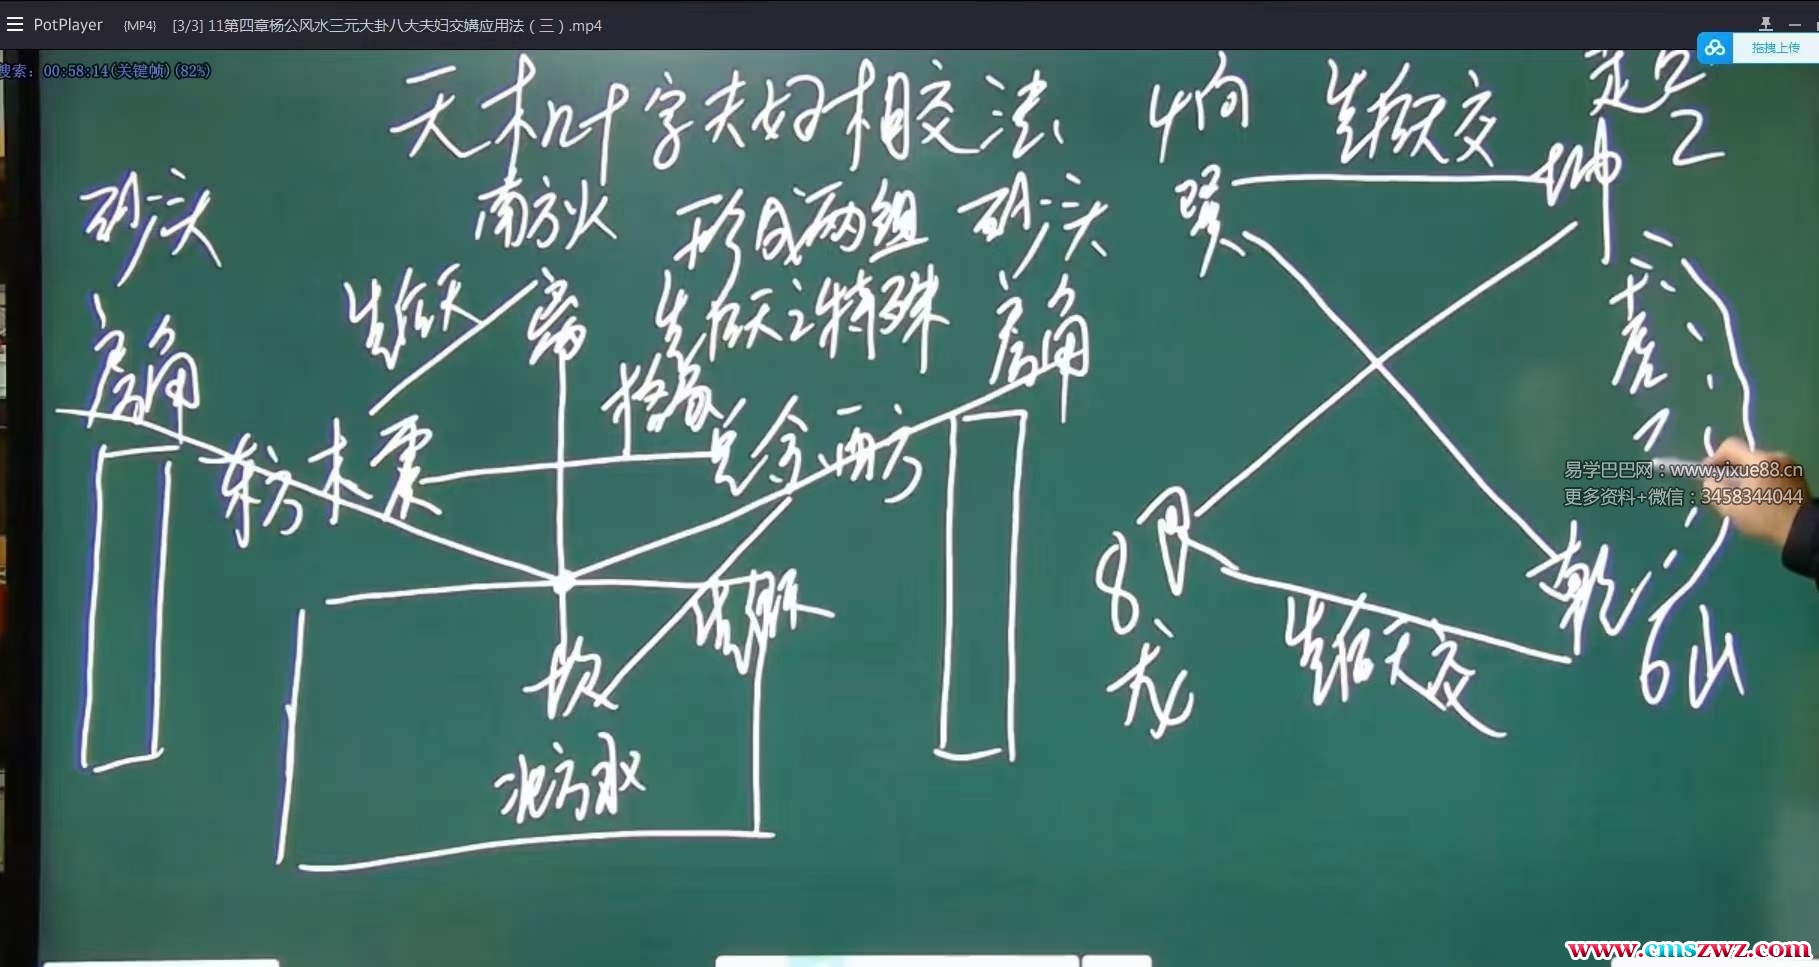 PotPlayer {MP4} [3/3] 11第四章杨公风水三元大卦八大夫妇交媾应用法（三）.mp4
拖拽上传
搜索: 00:58:14(关键帧)(82%)
天机叶字夫妇相交法
4向
先後天交
巽
坤
2
砂头
南方火
形成两组
砂头
先後天之特殊
房角
先後天
离
房角
卦象
兑金西方
东方木震
易学巴巴网：www.yixue88.cn
更多资料+微信：3458344044
8
艮
龙
乾
6山
先後天交
坎
北方水
www.cmszwz.com